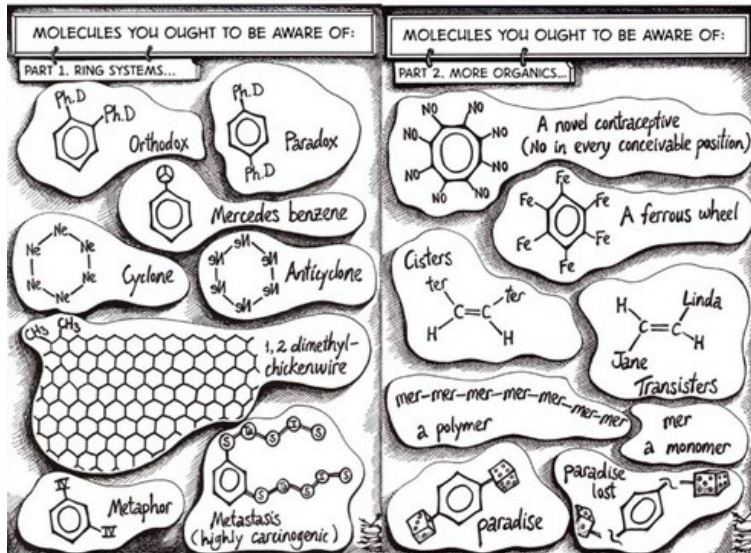 MOLECULES YOU OUGHT TO BE AWARE OF:
PART 1. RING SYSTEMS...
Ph.D
Ph.D
Orthodox
Ph.D
Ph.D
Paradox
Mercedes benzene
Ne
Ne
Ne
Ne
Ne
Ne
Cyclone
Ne
Ne
Ne
Ne
Ne
Ne
Anticyclone
CH3
CH3
1,2 dimethyl-
chickenwire
IV
IV
Metaphor
S
I
S
S
S
Metastasis
(highly carcinogenic)
MOLECULES YOU OUGHT TO BE AWARE OF:
PART 2. MORE ORGANICS...
NO
NO
NO
NO
NO
NO
NO
NO
A novel contraceptive
(NO in every conceivable position)
Fe
Fe
Fe
Fe
Fe
Fe
A ferrous wheel
Cisters
ter
ter
C=C
H
H
H
Linda
C=C
Jane
H
Transisters
mer-mer-mer-mer-mer-mer-mer-mer
a polymer
mer
a monomer
paradise
paradise
lost